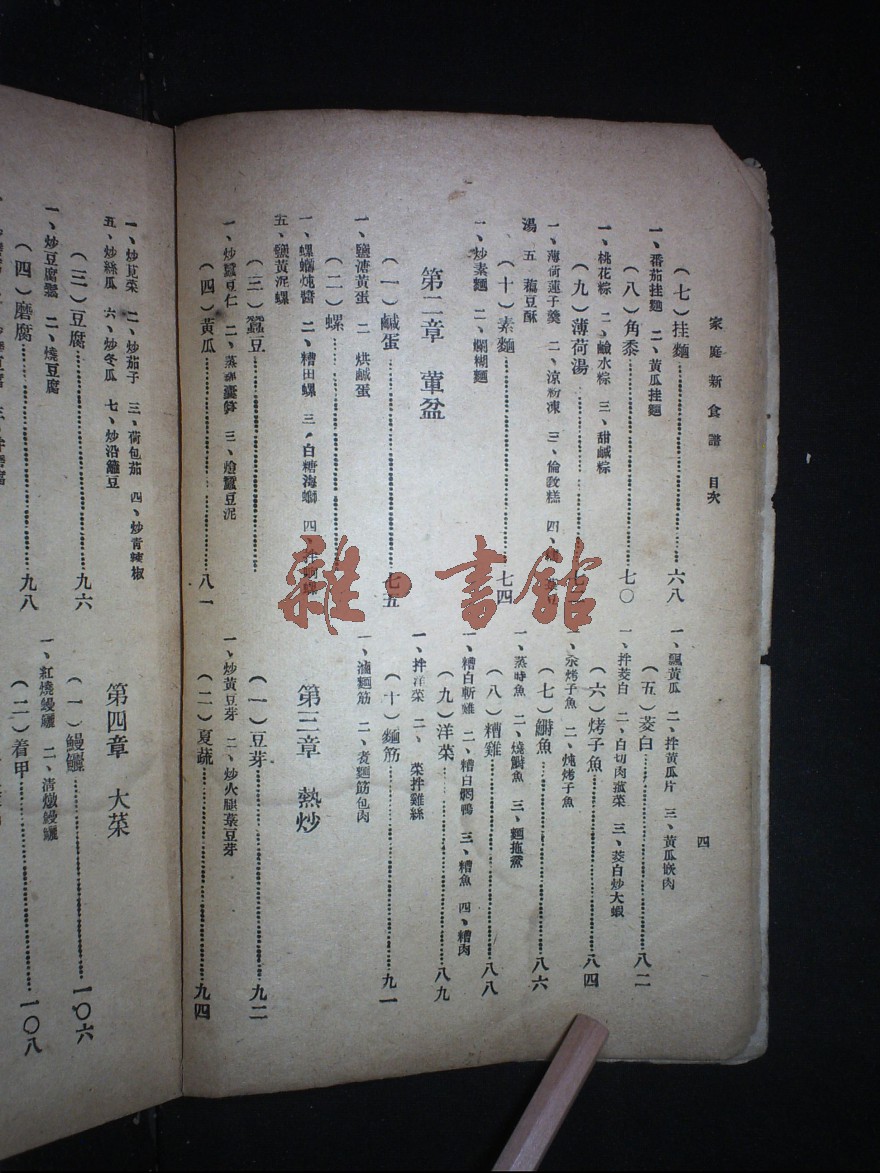 家庭新食譜 目次
四
(七)挂麵……六八
一、番茄挂麵 二、黃瓜挂麵
(八)角黍……七〇
一、桃花粽 二、鹼水粽 三、甜鹹粽
(九)薄荷湯……七三
一、薄荷蓮子羹 二、涼粉凍 三、倫敎糕 四、
湯 五 藕豆酥
(十)素麵……七四
一、炒素麵 二、爛糊麵
第二章 葷盆
(一)鹹蛋……七五
一、鹽溏黃蛋 二 烘鹹蛋
(二)螺……
一、螺螄炖醬 二、糟田螺 三、白糖海螄 四、
五、鹽黃泥螺
(三)蠶豆……
一、炒蠶豆仁 二、蒸 三、燴蠶豆泥
(四)黃瓜……八一
一、瓢黃瓜 二、拌黃瓜片 三、黃瓜嵌肉
(五)茭白……八二
一、拌茭白 二、白切肉菹菜 三、茭白炒大蝦
(六)烤子魚……八四
一、汆烤子魚 二、炖烤子魚
(七)鰣魚……八六
一、蒸時魚 二、燒鰣魚 三、麵拖鮝
(八)糟雞……八八
一、糟白斬雞 二、糟白燜鴨 三、糟魚 四、糟肉
(九)洋菜……八九
一、拌洋菜 二、 菜拌雞絲
(十)麵筋……九一
一、滷麵筋 二、煑麵筋包肉
第三章 熱炒
(一)豆芽……九二
一、炒黃豆芽 二、炒火腿菉豆芽
(二)夏蔬……九四
一、炒莧菜 二、炒茄子 三、荷包茄 四、炒青辣椒
五、炒絲瓜 六、炒冬瓜 七、炒沿籬豆
(三)豆腐……九六
一、炒豆腐鬆 二、燒豆腐
(四)磨腐……九八
第四章 大菜
(一)鰻鱺……一〇六
一、紅燒鰻鱺 二、清燉鰻鱺
(二)着甲……一〇八
雜·書館